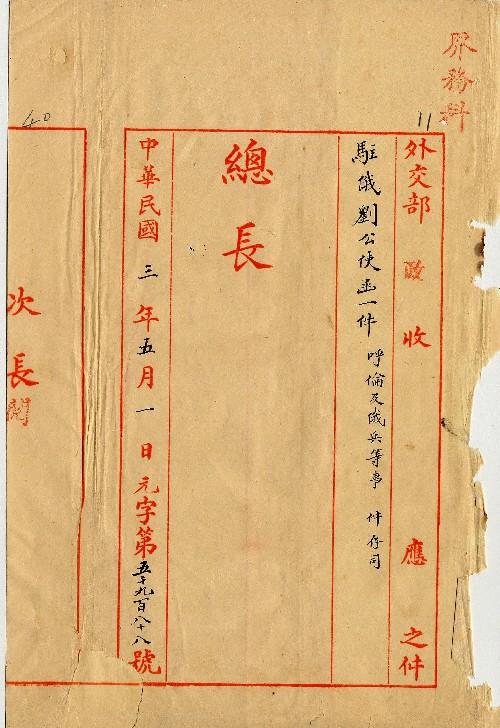 界務科
11
外交部 政 收 應 之件
駐俄劉公使函一件 呼倫及俄兵等事 件存司
總長
中華民國三年五月一日元字第五千九百八十八號
40
次長 閱